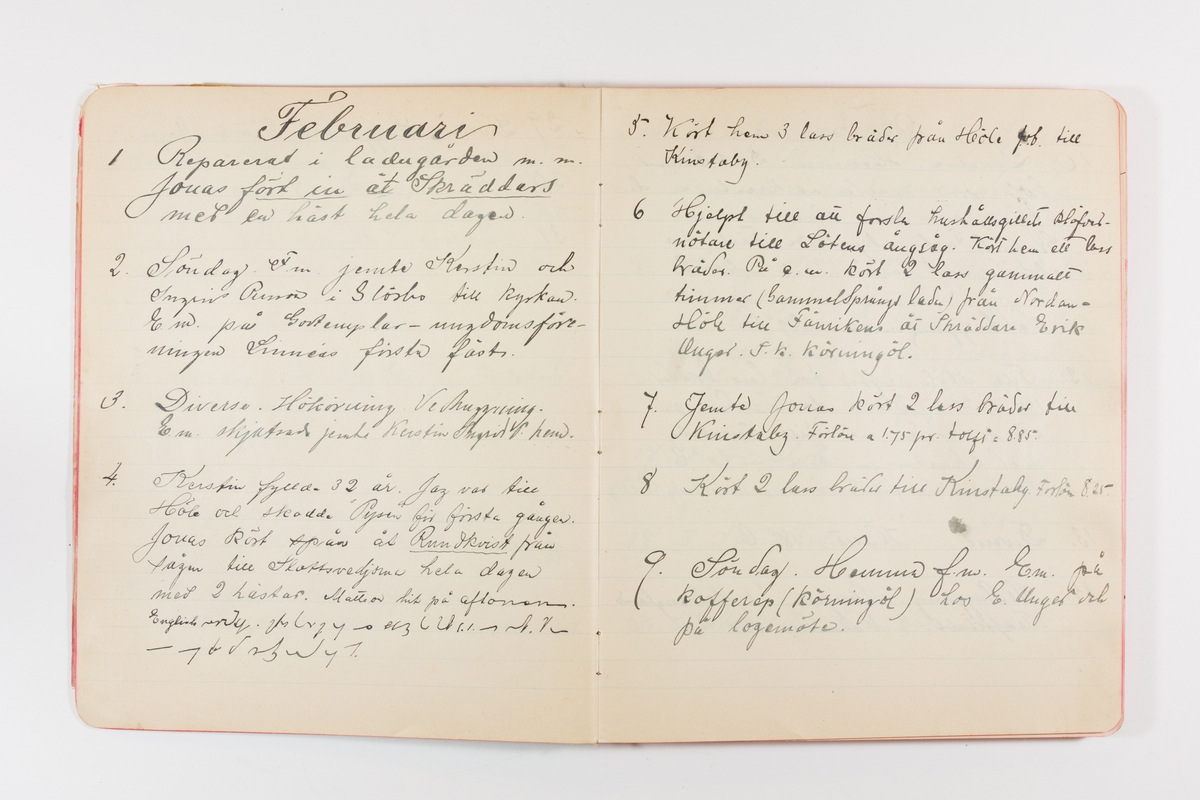 Februari
1 Reparerat i ladugården m. m.
Jonas fört in åt Skräddars
med en häst hela dagen.
2. Söndag. F m. jemte Kerstin och
Ingrid i till kyrkan.
E m. på Godtemplar-ungdomsföre-
ningen Linnéas första fäst.
3. Diverse. Hökörning.
E m. skjutsade jemte Kerstin Ingrid P. hem.
4. Kerstin fyllde 32 år. Jag var till
Höle och skodde "Pysen" för första gången.
Jonas kört spån åt Rundkvist från
sågen till Slottsvedjorna hela dagen
med 2 hästar. hit på aftonen.
5. Kört hem 3 lass bräder från Höle till
Kinstaby.
6 Hjelpt till att forsla hushållsgillets
nötare till Lötens ångsåg. Kört hem ett lass
bräder. På e. m. kört 2 lass gammalt
timmer (Gammelsprångs ladu) från Nordan-
Höle till Fänrikens åt Skräddare Erik
Unger. S. k. körningöl.
7 Jemte Jonas kört 2 lass bräder till
Kinstaby. Förlön a 1.75 pr. tolft = 8.85.
8 Kört 2 lass bräder till Kinstaby. Förlön 8.25
9. Söndag. Hemma f.m. Em. på
kafferep (körningöl) hos E. Unger och
på logemöte.